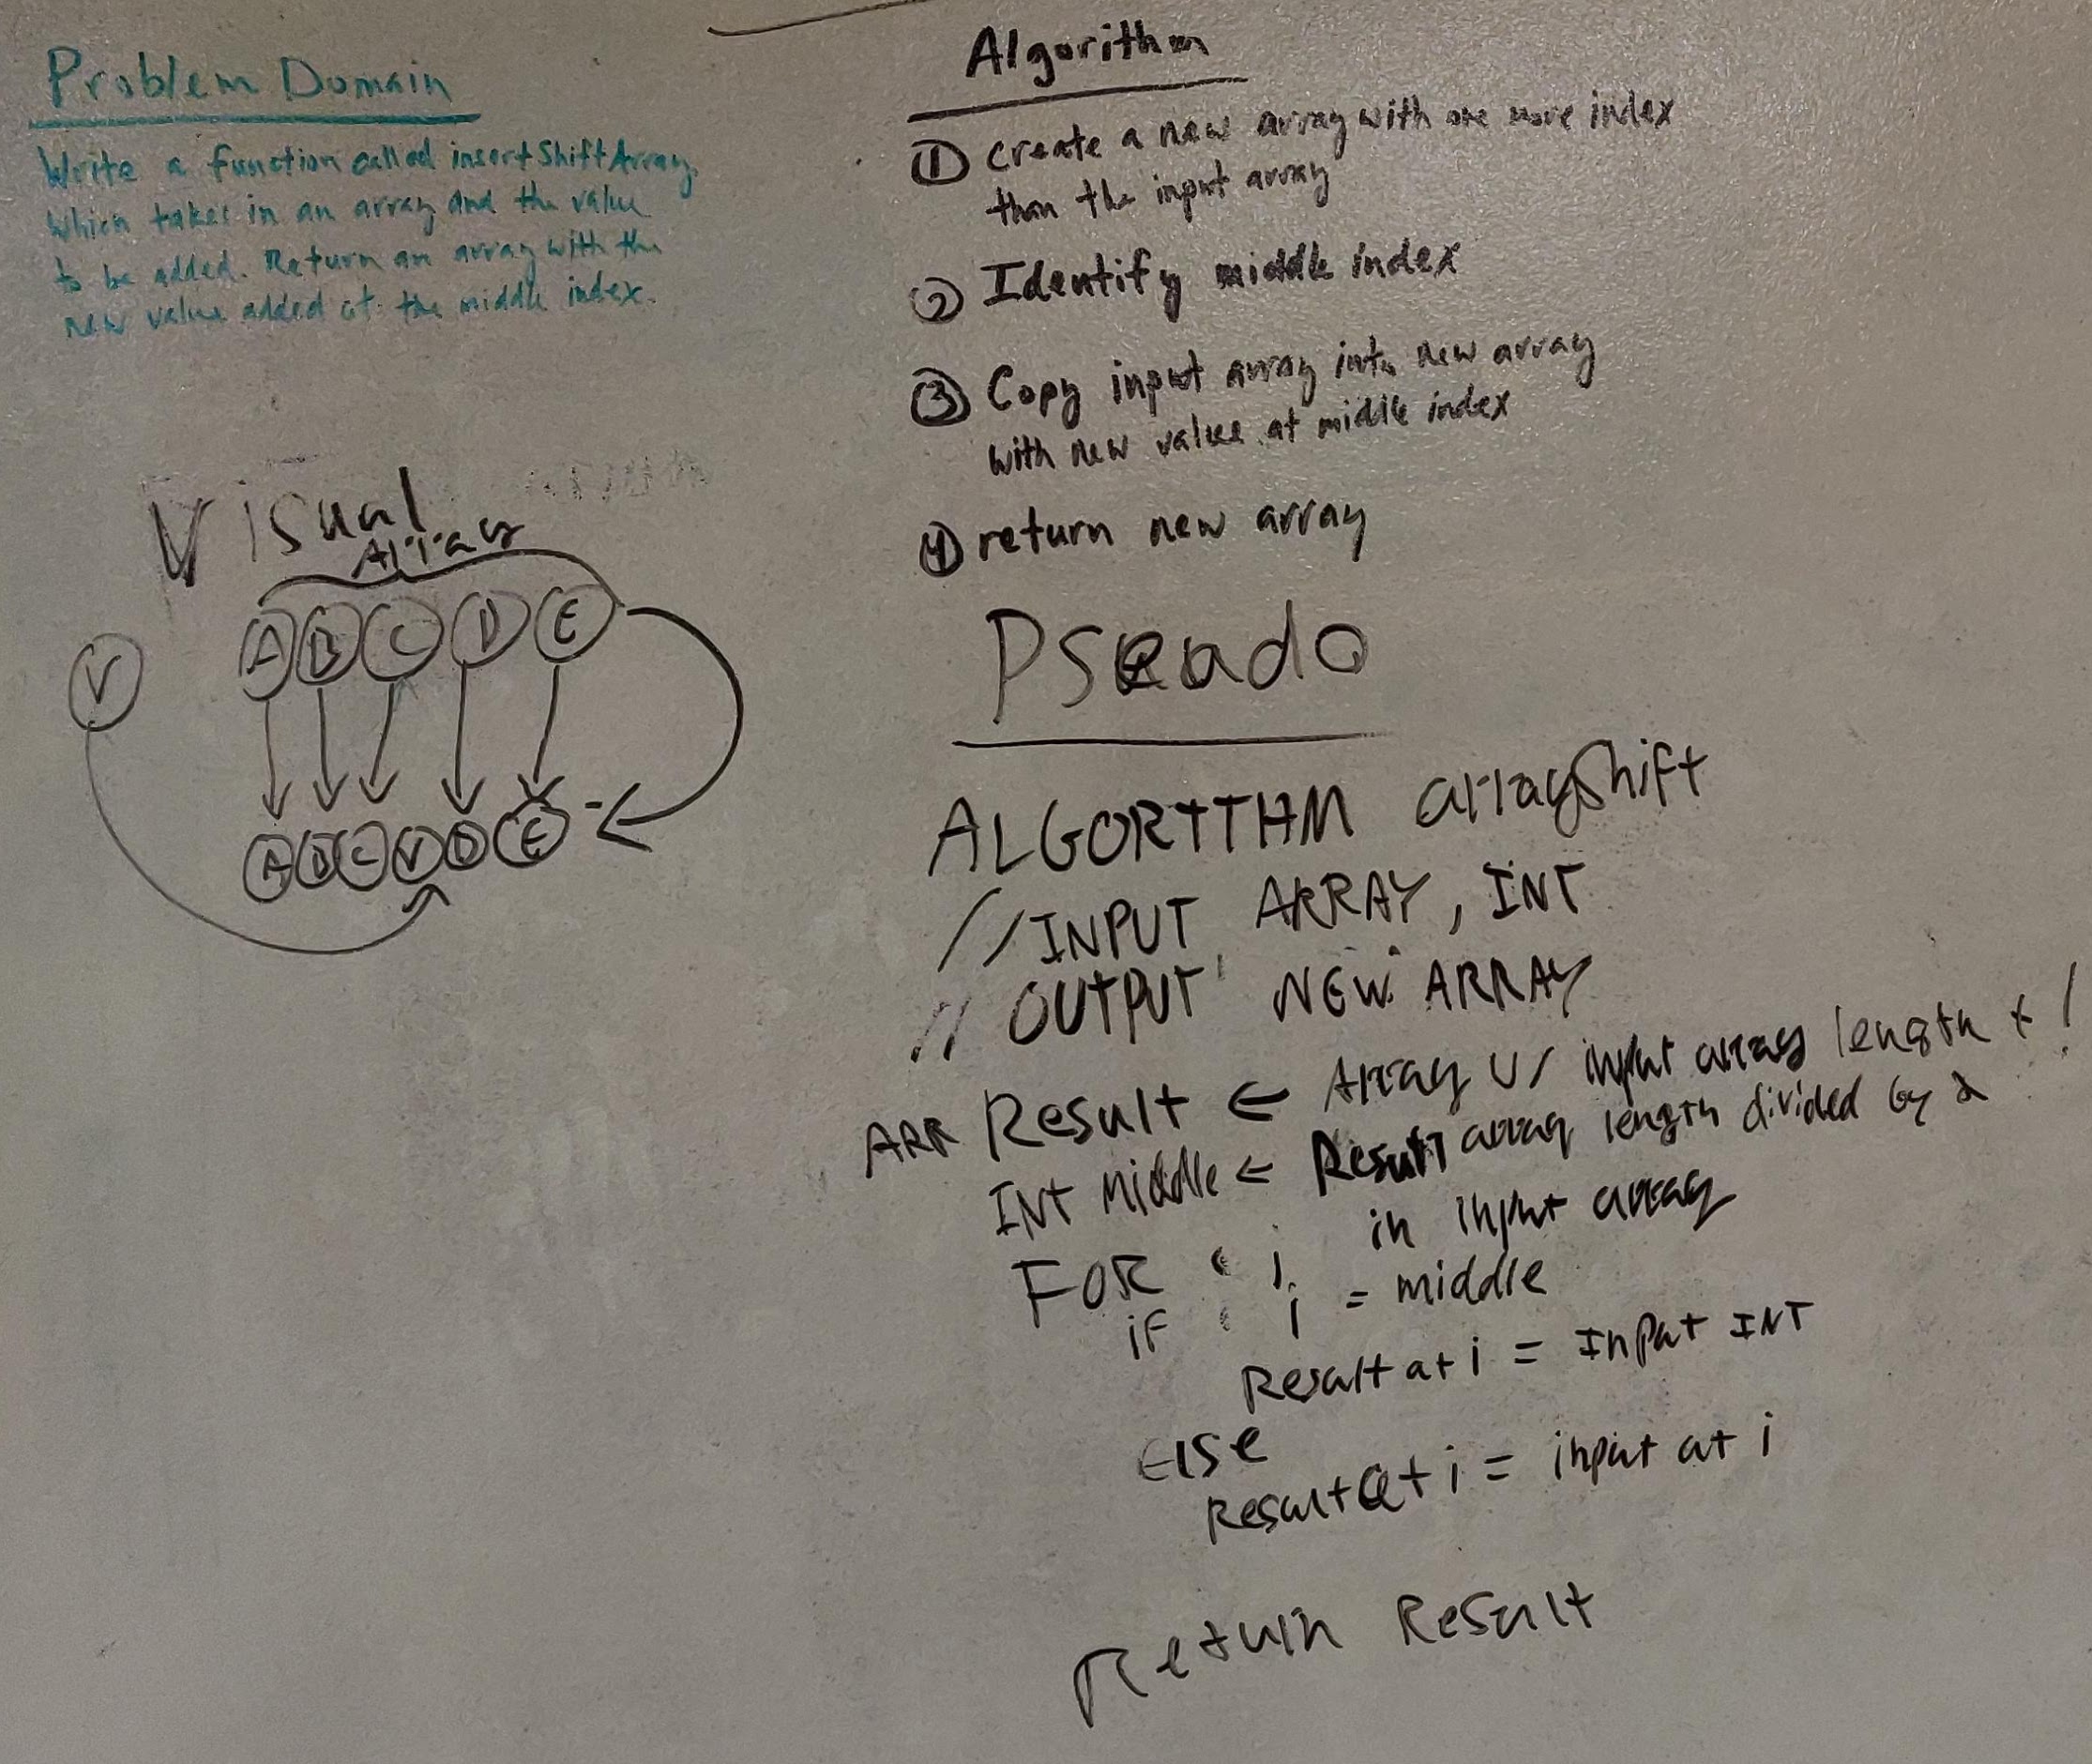 Problem Domain
Write a function called insertShiftArray,
which takes in an array and the value
to be added. Return an array with the
new value added at the middle index.
Visual
Array
V
A B C D E
A B C V D E
Algorithm
① Create a new array with one more index
than the input array
② Identify middle index
③ Copy input array into new array
with new value at middle index
④ return new array
Pseudo
ALGORITHM arrayShift
// INPUT ARRAY, INT
// OUTPUT NEW ARRAY
ARR Result ← Array w/ input array length + 1
INT Middle ← Result array length divided by 2
FOR i in input array
if i = middle
Result at i = Input INT
Else
Result at i = input at i
Return Result